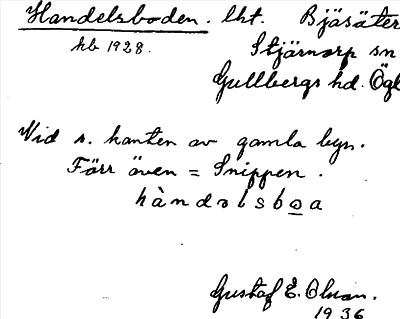 Handelsboden. lht. Bjäsäter
hb 1928. Stjärnorp sn
Gullbergs hd. Ögl
Vid s. kanten av gamla byn.
Färr även = Snippen.
hàndəlsboa
Gustaf E. Olson.
1936